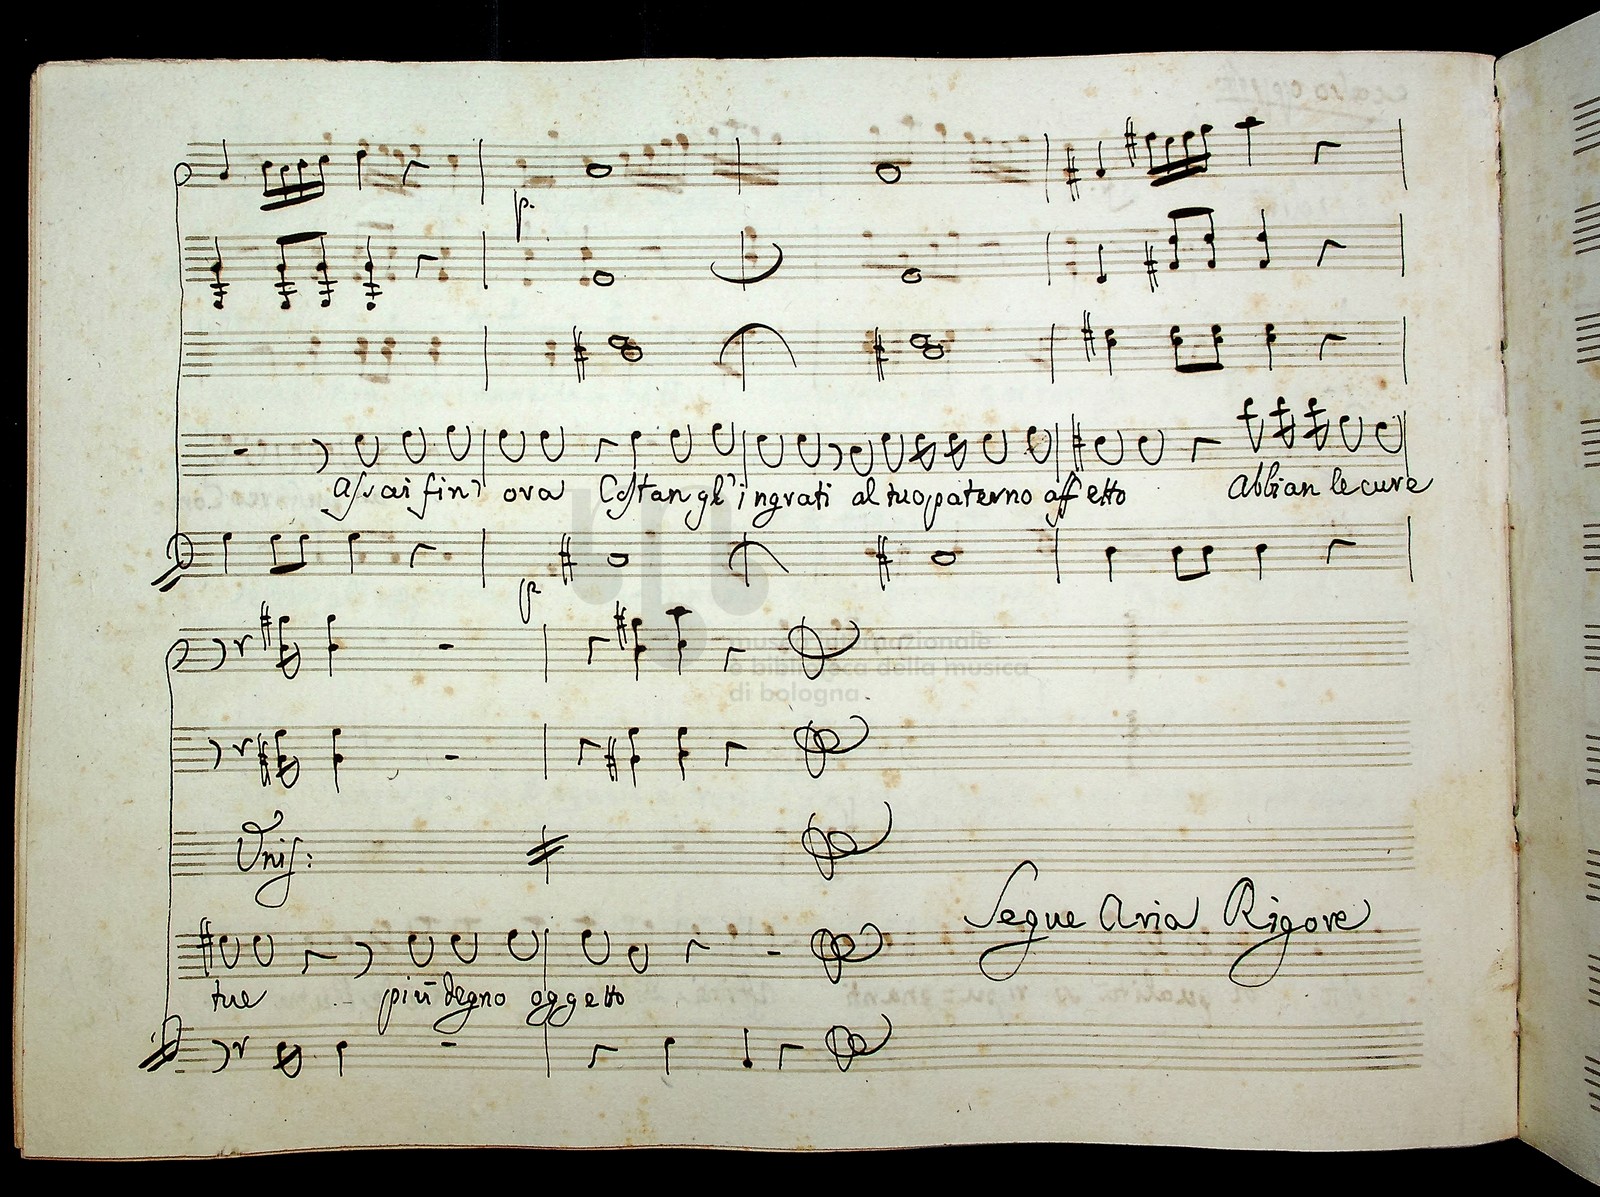 p.
Assai fin' ora Costan gl'ingrati al tuo paterno affetto Abbian le cure
p.
museo internazionale
e biblioteca della musica
di bologna
Unis:
Segue Aria Rigore
tue più degno oggetto